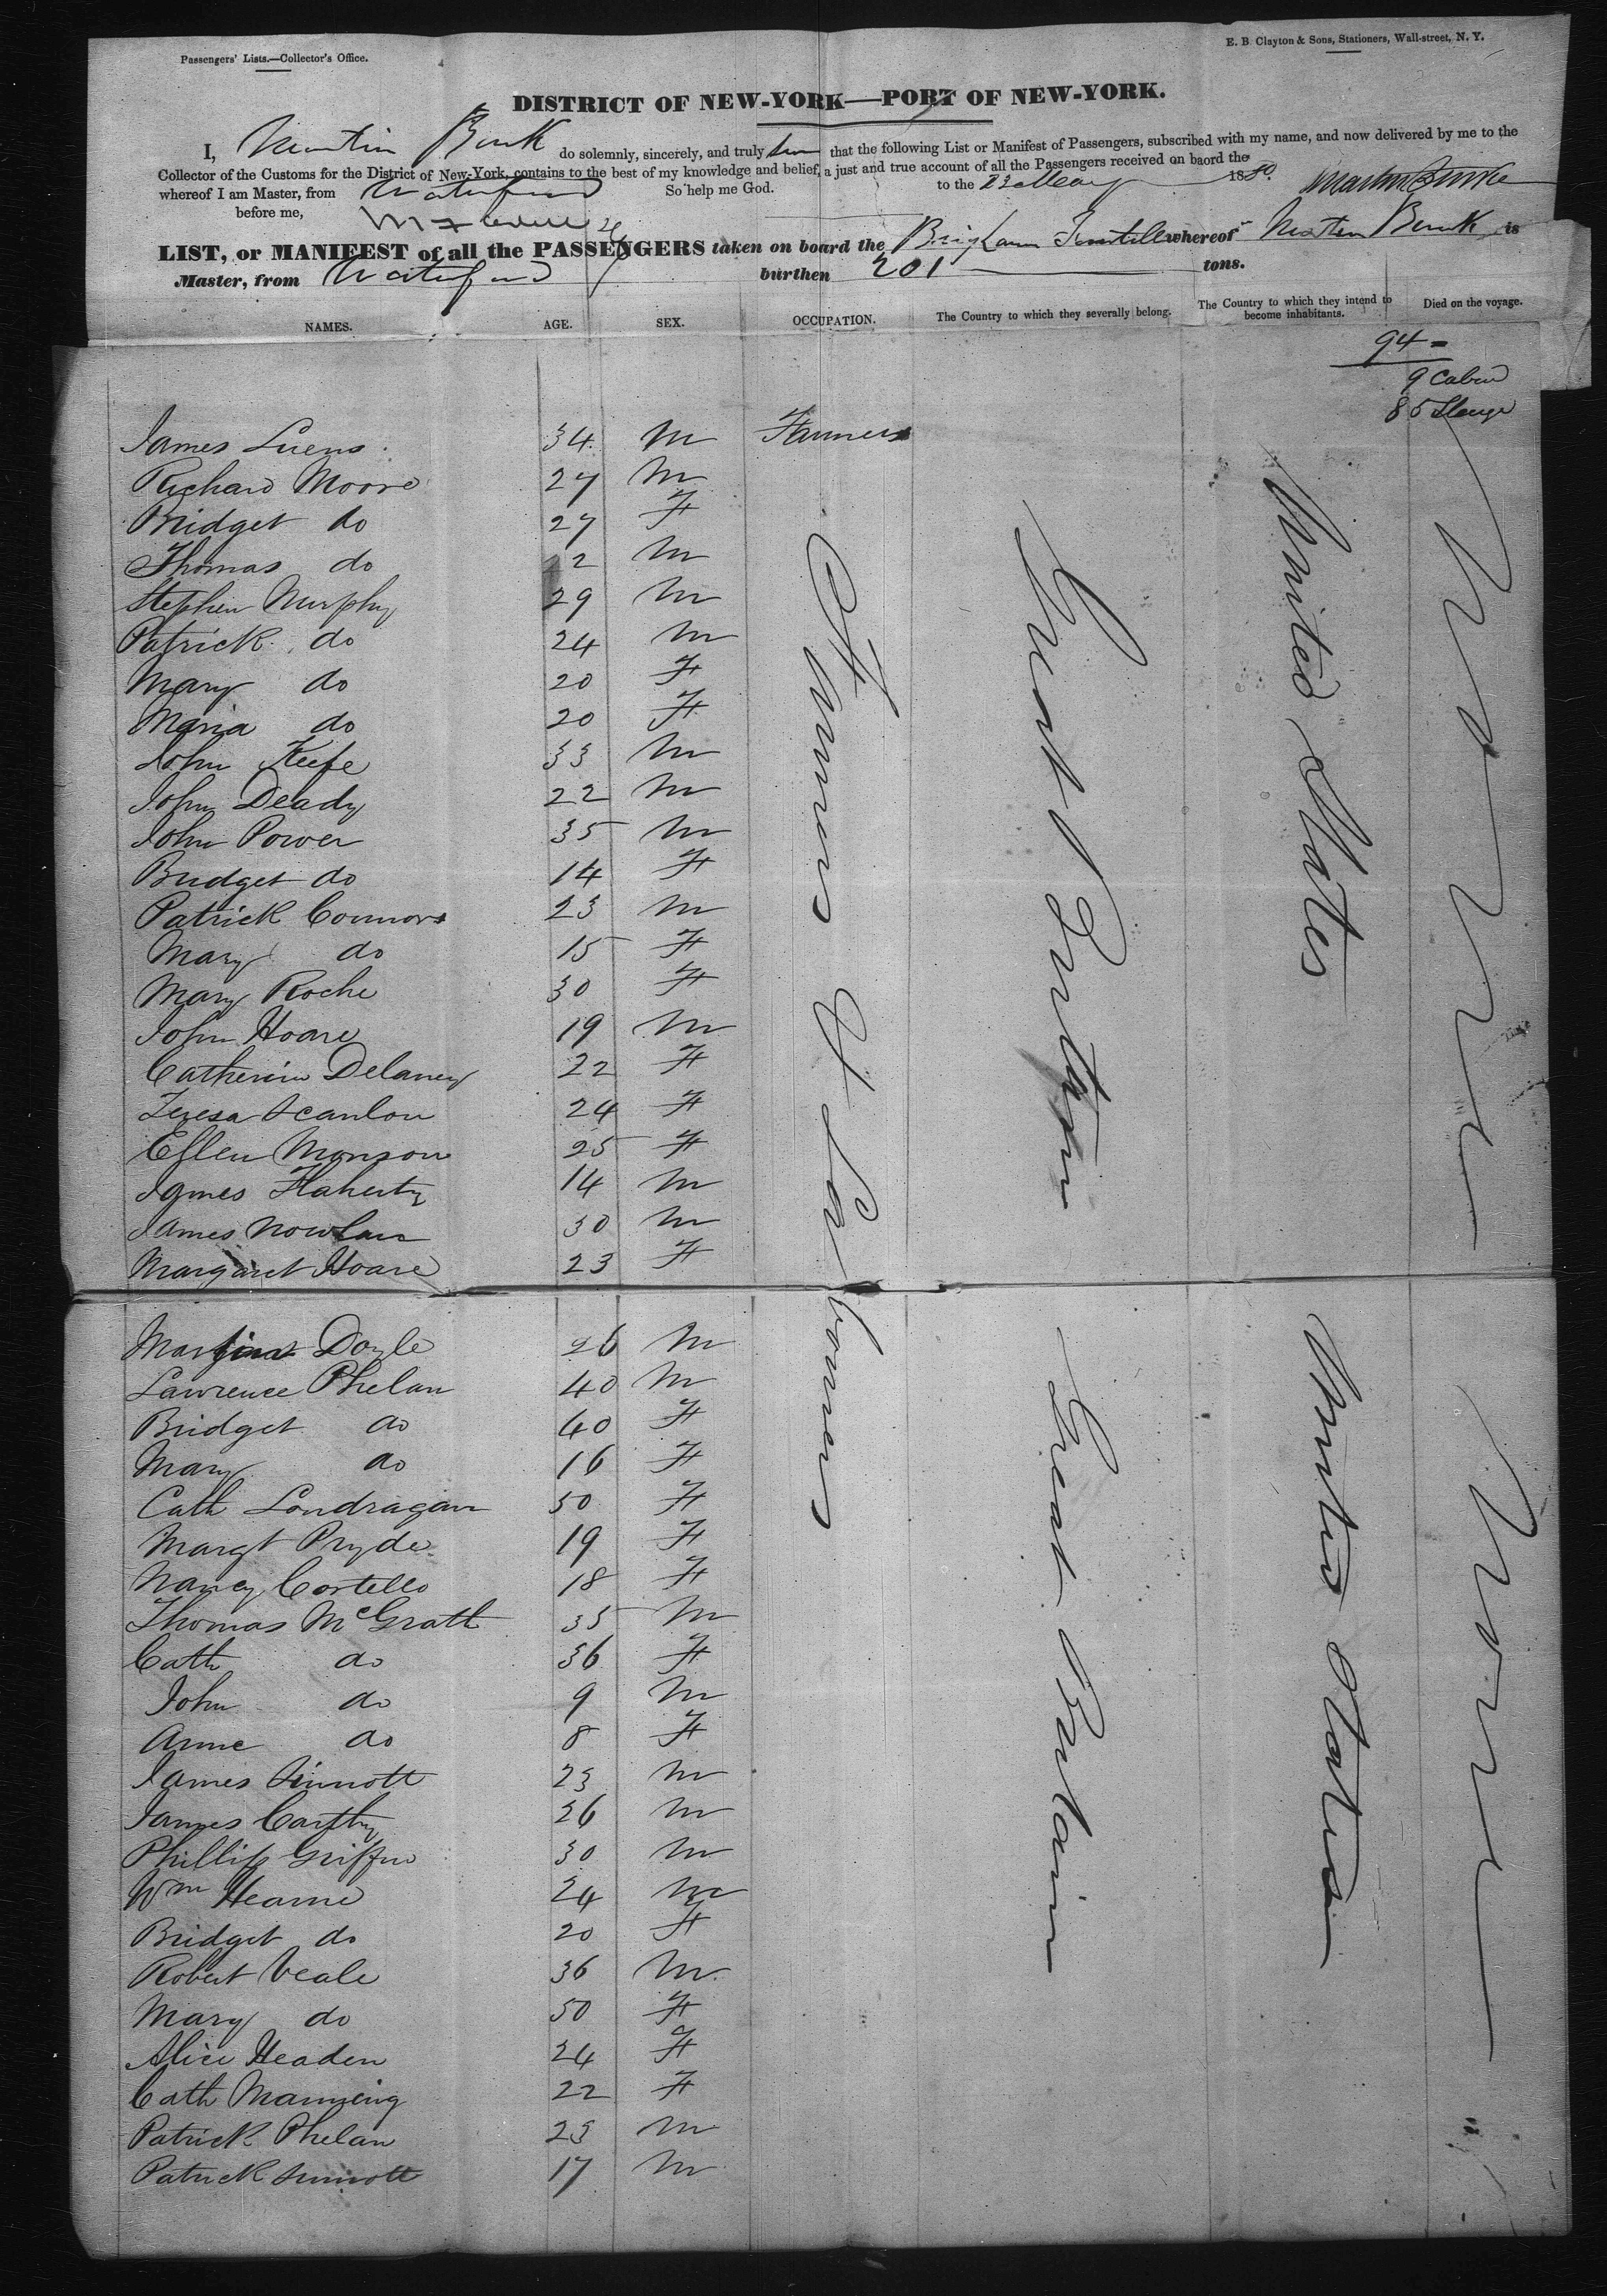 Passengers' Lists.—Collector's Office.
E. B. Clayton & Sons, Stationers, Wall-street, N. Y.
DISTRICT OF NEW-YORK—PORT OF NEW-YORK.
I, Martin Burk do solemnly, sincerely, and truly that the following List or Manifest of Passengers, subscribed with my name, and now delivered by me to the
Collector of the Customs for the District of New-York, contains to the best of my knowledge and belief, a just and true account of all the Passengers received on baord the
whereof I am Master, from Waterford So help me God. to the 23 May 1850. Martin Burke
before me,
LIST, or MANIFEST of all the PASSENGERS taken on board the Brig whereof Martin Burk is
Master, from Waterford burthen 201 tons.
NAMES. AGE. SEX. OCCUPATION. The Country to which they severally belong. The Country to which they intend to become inhabitants. Died on the voyage.
94 =
9 Cabin
85 Steerage
James Luens 34 M Farmers
Richard Moore 27 M
Bridget do 27 F
Thomas do 2 M
Stephen Murphy 29 M
Patrick do 24 M
Mary do 20 F
Maria do 20 F
John Keefe 33 M
John Deady 22 M
John Power 35 M
Bridget do 14 F
Patrick Connors 23 M
Mary do 15 F
Mary Roche 30 F
John Hoare 19 M
Catherine Delaney 22 F
Teresa Scanlon 24 F
Ellen Monson 25 F
James Flaherty 14 M
James Nowlan 30 M
Margaret Hoare 23 F
Farmers & Labourers
Great Britain
United States
None
Doyle 26 M
Lawrence Phelan 40 M
Bridget do 40 F
Mary do 16 F
Cath Londragan 50 F
Margt Pryde 19 F
Nancy Costello 18 F
Thomas McGrath 35 M
Cath do 36 F
John do 9 M
Anne do 8 F
James Sinnott 23 M
James Carthy 26 M
Phillip Griffin 30 M
Wm Hearne 24 M
Bridget do 20 F
Robert Veale 36 M
Mary do 50 F
Alice Headen 24 F
Cath Manning 22 F
Patrick Phelan 23 M
Patrick Sinnott 17 M
Great Britain
United States
None